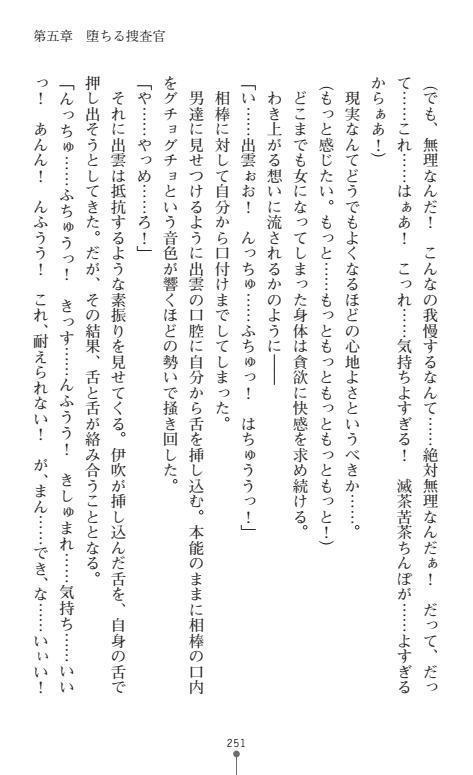 第五章　堕ちる捜査官
(でも、無理なんだ！　こんなの我慢するなんて……絶対無理なんだぁ！　だって、だっ
て……これ……はぁあ！　こっれ……気持ちよすぎる！　滅茶苦茶ちんぽが……よすぎる
からぁあ！)
現実なんてどうでもよくなるほどの心地よさというべきか……。
(もっと感じたい。もっと……もっともっともっともっと！)
どこまでも女になってしまった身体は貪欲に快感を求め続ける。
わき上がる想いに流されるかのように――
「い……出雲ぉお！　んっちゅ……ふちゅっ！　はちゅううっ！」
相棒に対して自分から口付けまでしてしまった。
男達に見せつけるように出雲の口腔に自分から舌を挿し込む。本能のままに相棒の口内
をグチョグチョという音色が響くほどの勢いで掻き回した。
「や……やっめ……ろ！」
それに出雲は抵抗するような素振りを見せてくる。伊吹が挿し込んだ舌を、自身の舌で
押し出そうとしてきた。だが、その結果、舌と舌が絡み合うこととなる。
「んっちゅ……ふちゅうっ！　きっす……んふうう！　きしゅまれ……気持ち……いい
っ！　あんん！　んふうう！　これ、耐えられない！　が、まん……でき、な……いぃい！
251